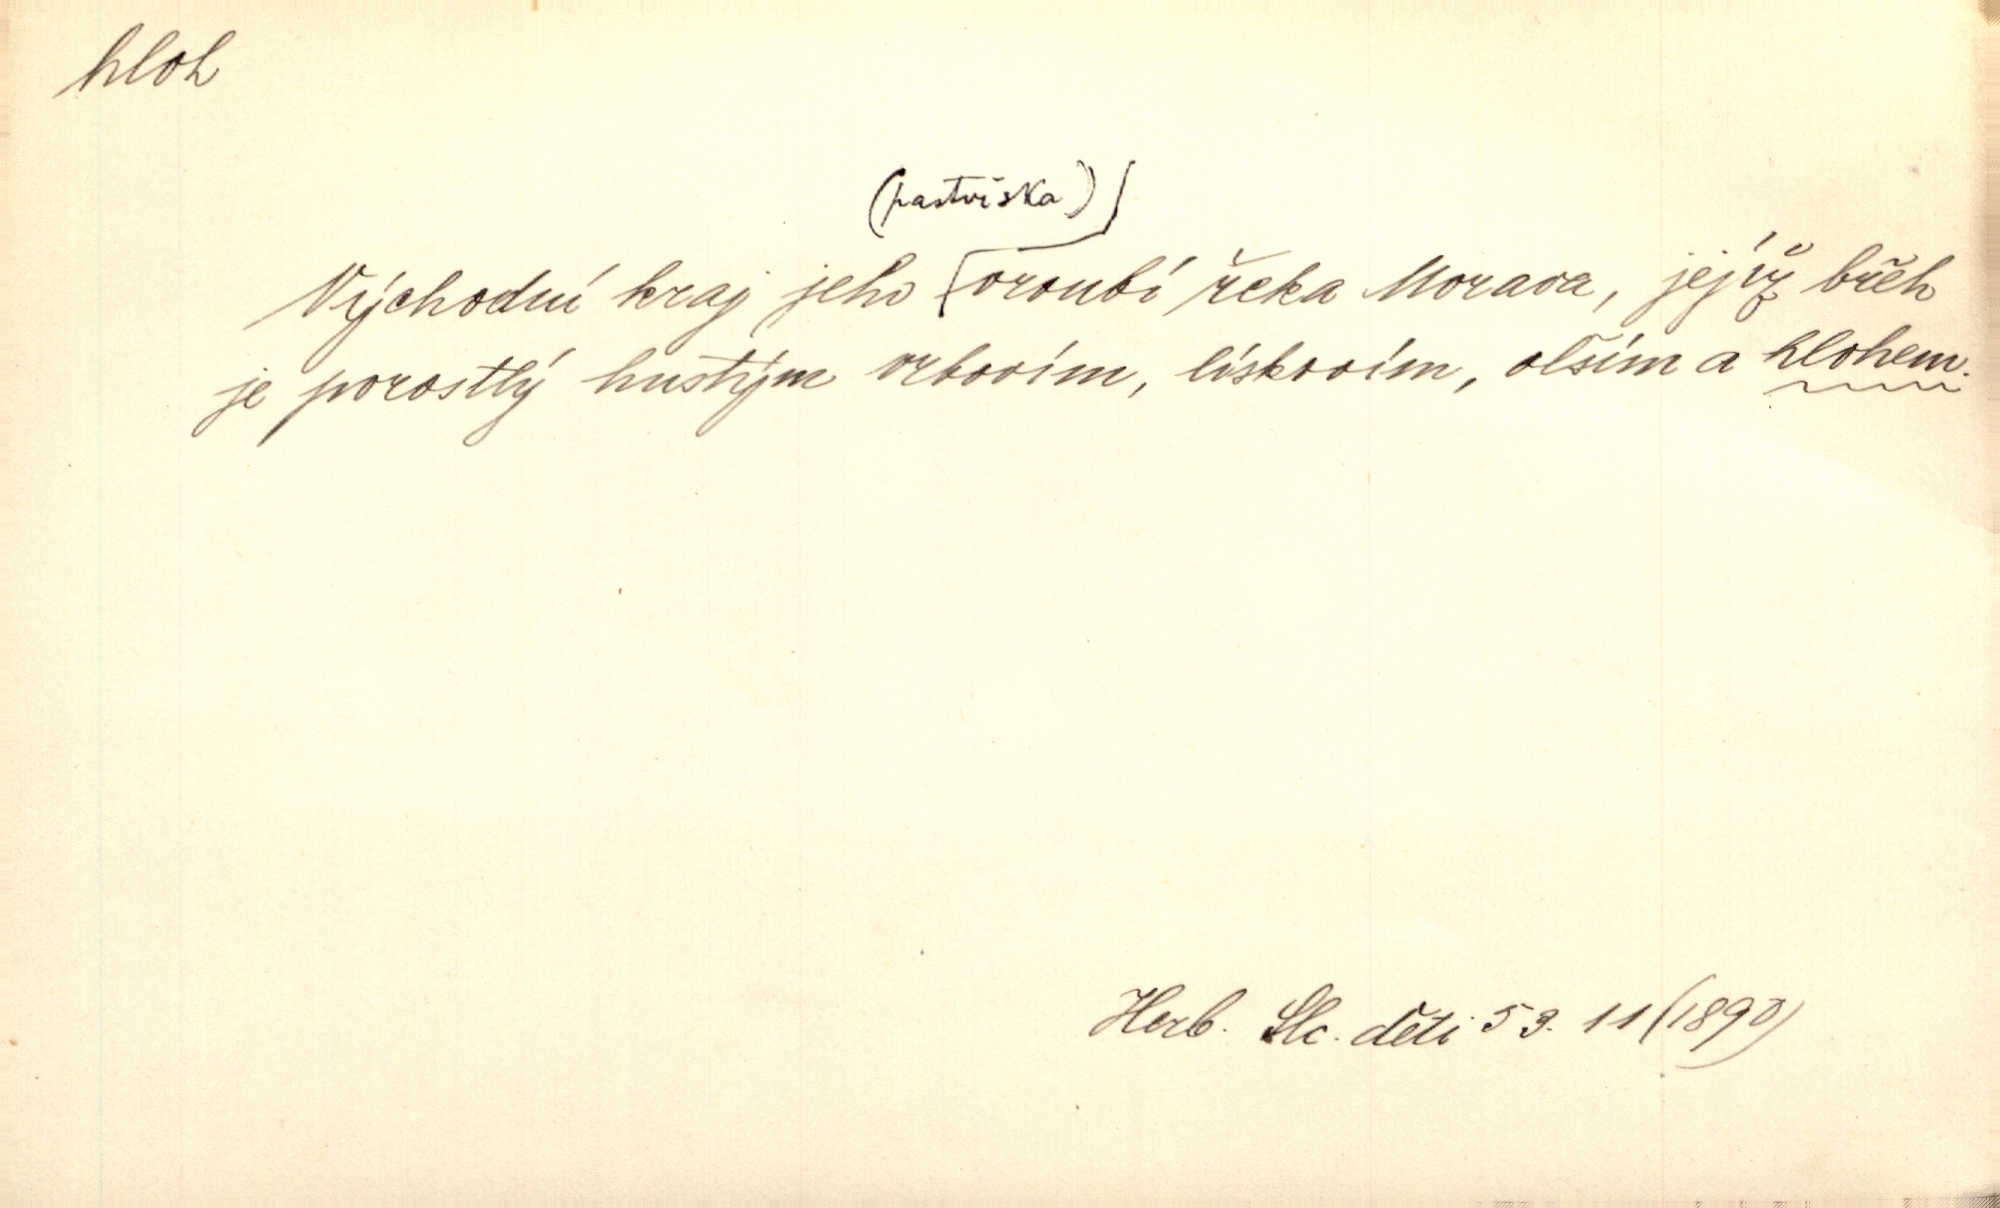 hloh
(pastviska)
Východní kraj jeho vroubí řeka Morava, jejíž břeh
je porostlý hustým vrbovím, lískovím, olším a hlohem.
Herb. Slc. děti 53. 11 (1890)